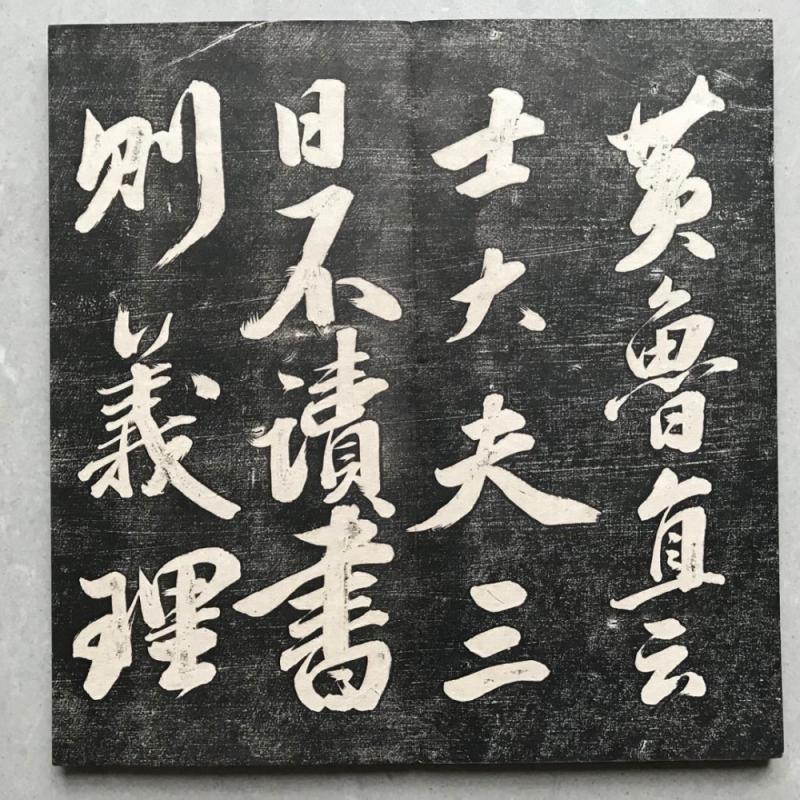 黄魯直云
士大夫三
日不讀書
則義理